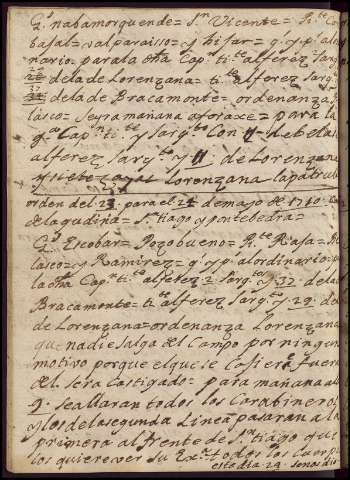 Gd. nabamorquende = Sn. Vicente = Rte. Car
bajal = valparaisso = y hijar = gª. y pª. al or
dinario para la otra Capn. tite. alferez Sargto.
de la de Lorenzana = tite. alferez Sargto.
de la de Bracamonte = ordenanza
lasco = Seyra mañana a forraxe = para la
gª. Capn. tite. y Sargto. Con 11 = de Velasco
alferez Sargto. y 11 de Lorenzana
Lorenzana la patrulla
orden del 23 para el 24 de mayo de 1710 =
de la gudiña = Stiago y pontebedra =
Gd. Escobar = Pozobueno = Rte. Rasa = Be
lasco = y Ramirez = gª. y pª. al ordinario: pª.
la otra Capn. tite. alferez 2 Sargtos. y 37 de la de
Bracamonte = tite. alferez Sargto. y 29 de la
de Lorenzana = ordenanza Lorenzana
que nadie Salga del Campo por ningun
motivo porque el que se Cojiere fuera
del sera Castigado = para mañana a las
9 se allaran todos los Carabineros
y los de la segunda Linea pasaran a la
primera al frente de Stiago que
los quiere ver su Exª. todos los Cuerpos
esta dia 24 se nos dio